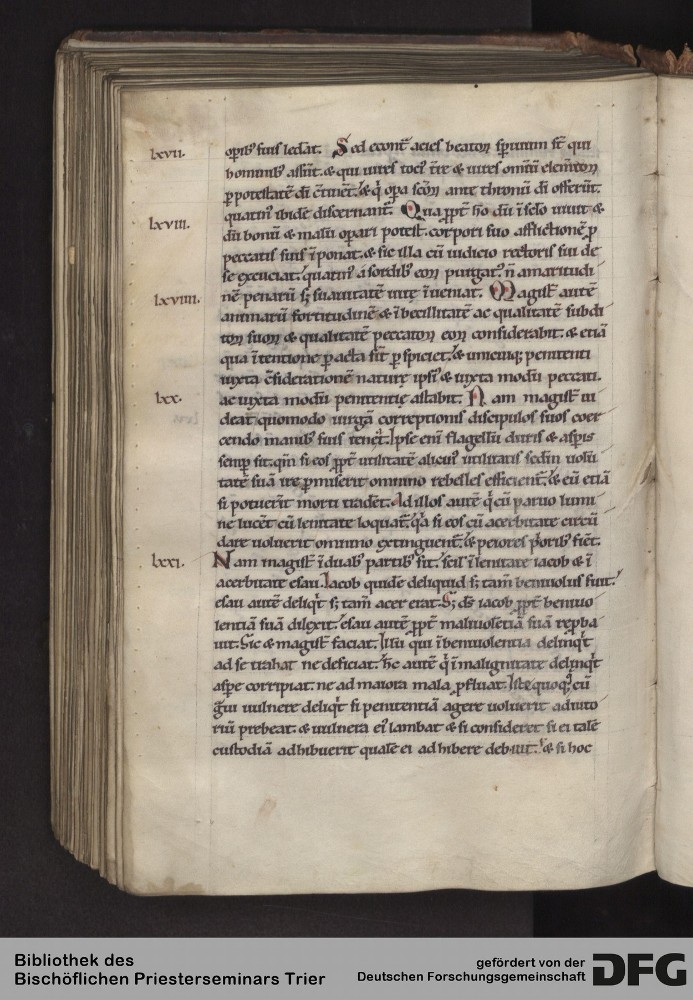 lxvii. opib' suis ledat̃. Sed econt̃ acies beatoꝝ sp̃irituum st̃ qui
hominib' assũt. & qui uires toci' t̃re & uires om̃iũ elem̃toꝝ
ꝑ potestatẽ dĩ c̃tinẽt. & q̃ oꝑa sc̃oꝝ ante thronũ dĩ offerũt.
lxviii. quatin' ibidẽ discernant̃. Qua ꝓpt̃ hõ dũ ĩ sc̃lo uiuit &
dũ bonũ & malũ oꝑari potest. corpori suo afflictionẽ ꝑ
peccatis suis ĩponat. & sic illa cũ iudicio rectoris sui de
se excuciat. quatin' a sordib' eoꝝ purgat'. ñ amaritudi
lxviiii. nẽ penarũ sꝫ suauitatẽ uitę ĩueniat. Magist̃ autẽ
animarũ fortitudinẽ & ĩbecillitatẽ ac qualitatẽ subdi
toꝝ suoꝝ & qualitatẽ peccatoꝝ eoꝝ considerabit. & etiã
qua ĩtentione ꝑacta sĩt ꝑspiciet. & unicuiqꝫ penitenti
iuxta c̃siderationẽ naturę ipsi' & iuxta modũ peccati.
lxx. ac iuxta modũ penitentię astabit. Nam magist̃ ui
deat quomodo uirgã correptionis discipulos suos coer
cendo manib' suis tenet̃. Ipse eni flagellũ duris & asꝑis
semꝑ sit. qm̃ si eos ꝓpt̃ utilitatẽ alicui' utilitatis sedm̃ uolũ
tatẽ suã ire ꝑmiserit omnino rebelles efficient̃. & eũ etiã
si potuerĩt morti tradẽt. Ad illos autẽ q̃ cũ paruo lumi
ne lucẽt cũ lenitate loquat̃. q̃a si eos cũ acerbitate circũ
dare uoluerit omnino extinguent̃. & peiores p̃orib' fiẽt.
lxxi. Nam magist̃ ĩ duab' partib' sit. scil' ĩ lenitate iacob & ĩ
acerbitate esau. Iacob quidẽ deliquid sꝫ tam̃ beniuolus fuit.
esau autẽ deliq̃t sꝫ tam̃ acer erat. Sꝫ ds̃ iacob ꝓpt̃ beniuo
lentiã suã dilexit. esau autẽ ꝓpt̃ maliuolẽtiã suã reꝑba
uit. Sic & magist̃ faciat. Illũ qui ĩ beniuolentia delinq̃t
ad se trahat ne deficiat. hc̃ autẽ q̃ ĩ malignitate delinq̃t
asꝑe corripiat. ne ad maiora mala ꝓfluat. Iste quoqꝫ cũ
g̃ui uulnere deliq̃t si penitentiã agere uoluerit adiuto
riũ prebeat. & uulnera ei' lambat & si consideret si ei talẽ
custodiã adhibuerit qualẽ ei adhibere debuit. & si hoc
Bibliothek des
Bischöflichen Priesterseminars Trier
gefördert von der
Deutschen Forschungsgemeinschaft
DFG